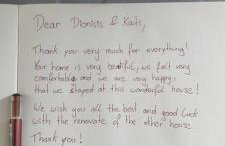 Dear Dionisis & Kaiti,
Thank you very much for everything!
Your home is very beautiful, we felt very
comfortable and we are very happy
that we stayed at this wonderful house!
We wish you all the best and good luck
with the renovate of the other house.
Thank you!